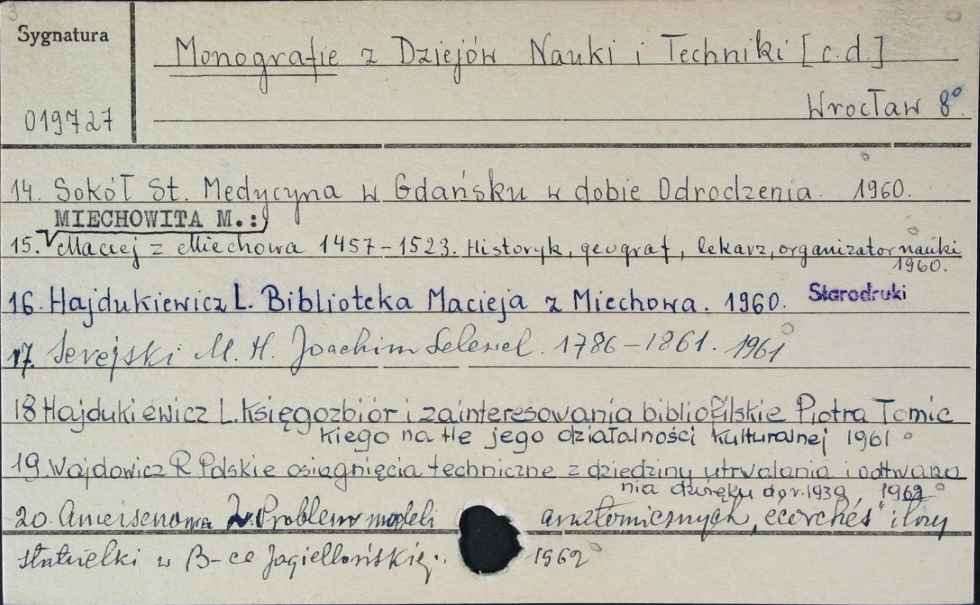 Sygnatura
Monografie z Dziejów Nauki i Techniki [c.d.]
019727
Wrocław 8°
14. Sokół St. Medycyna w Gdańsku w dobie Odrodzenia. 1960.
MIECHOWITA M.:
15. Maciej z Miechowa 1457-1523. Historyk, geograf, lekarz, organizator nauki
1960.
16. Hajdukiewicz L. Biblioteka Macieja z Miechowa. 1960. Starodruki
17. Serejski M. H. Joachim Lelewel. 1786-1861. 1961
18 Hajdukiewicz L. Księgozbiór i zainteresowania bibliofilskie Piotra Tomic
kiego na tle jego działalności kulturalnej 1961
19. Wajdowicz R Polskie osiągnięcia techniczne z dziedziny utrwalania i odtwarza
nia dźwięku do r. 1939 1962
20. Ameisenowa Z. Problem modeli anatomicznych, "écorchés" i trzy
statuetki w B-ce Jagiellońskiej. 1962